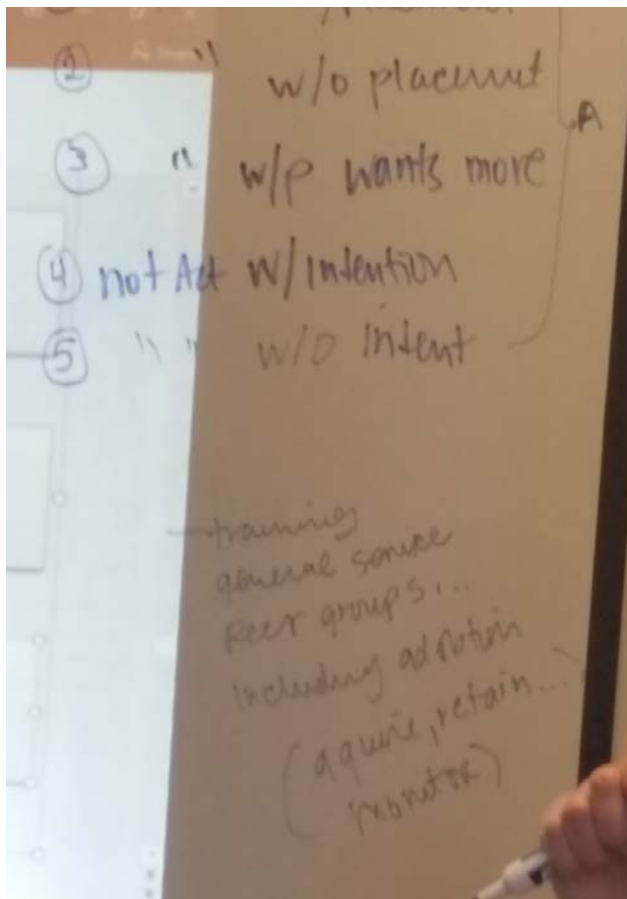 ② " w/o placement
③ " w/p wants more
A
④ not Act w/intention
⑤ " " w/o intent
- training
general service
Peer groups...
including adoption
(aquire, retain...)
monitor)